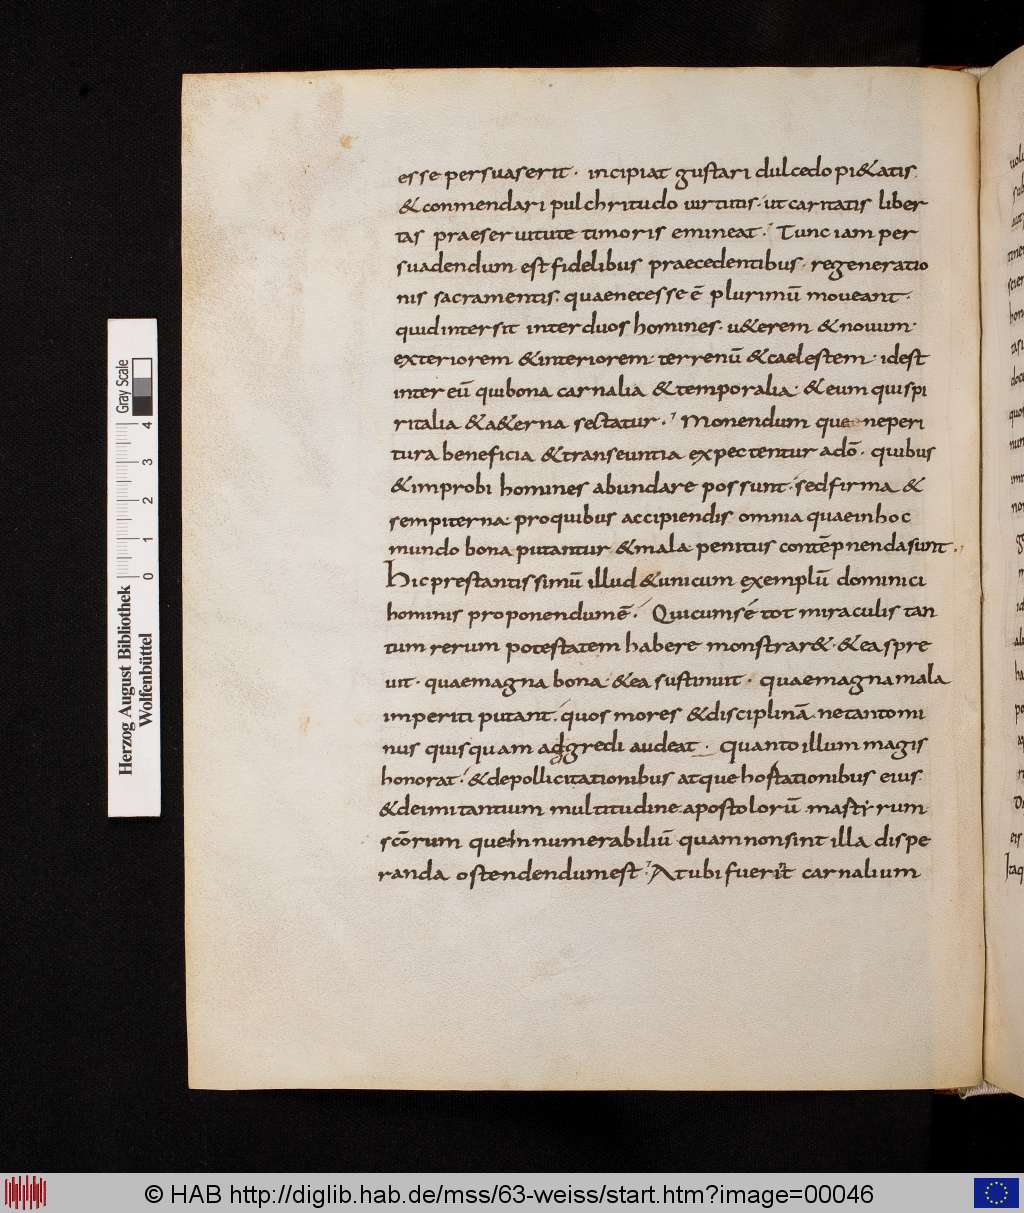 esse persuaserit · incipiat gustari dulcedo pi&atis
&conmendari pulchritudo uirtutis · ut caritatis liber
tas praeseruitute timoris emineat · Tunc iam per
suadendum est fidelibus praecedentibus · regeneratio
nis sacramentis · quaenecesse ē plurimū moueant ·
quid intersit inter duos homines · u&erem &nouum ·
exteriorem &interiorem · terrenū &caelestem · idest
inter eū quibona carnalia &temporalia · &eum quispi
ritalia &a&erna sectatur · Monendum que neperi
tura beneficia &transeuntia expectentur adō · quibus
&improbi homines abundare possunt · sed firma &
sempiterna proquibus accipiendis omnia quaeinhoc
mundo bona putantur &mala penitus contēpnendasunt ·
Hic prestantissimū illud &unicum exemplū dominici
hominis proponendumē · Quicumsé tot miraculis tan
tum rerum potestatem habere monstrar& · &ea spre
uit · quaemagna bona · &ea sustinuit · quaemagnamala
imperiti putant · quos mores &disciplinā netantomi
nus quisquam adgredi audeat · quanto illum magis
honorat · &depollicitationibus atque hortationibus eius
&deimitantium multitudine apostolorū martyrum
scōrum que innumerabiliū quamnonsint illa dispe
randa ostendendumest · At ubi fuerit carnalium
Herzog August Bibliothek
Wolfenbüttel
0 1 2 3 4
Gray Scale
© HAB http://diglib.hab.de/mss/63-weiss/start.htm?image=00046